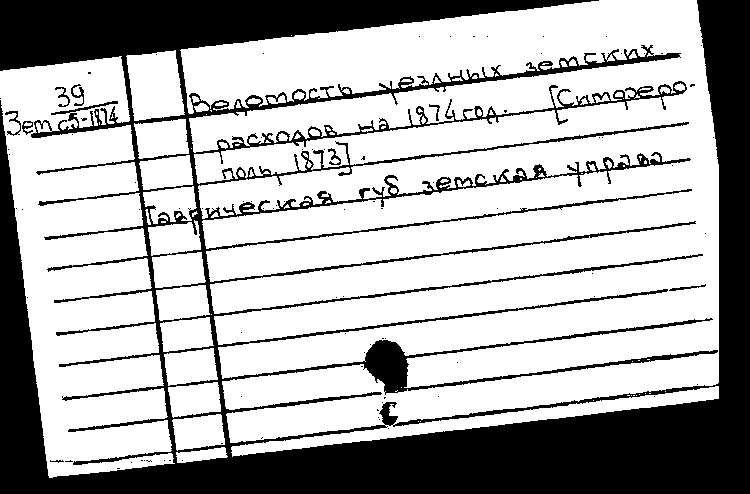 39
Зем с5-1874
Ведомость уездных земских
расходов на 1874 год. [Симферо-
поль, 1873].
Таврическая губ земская управа